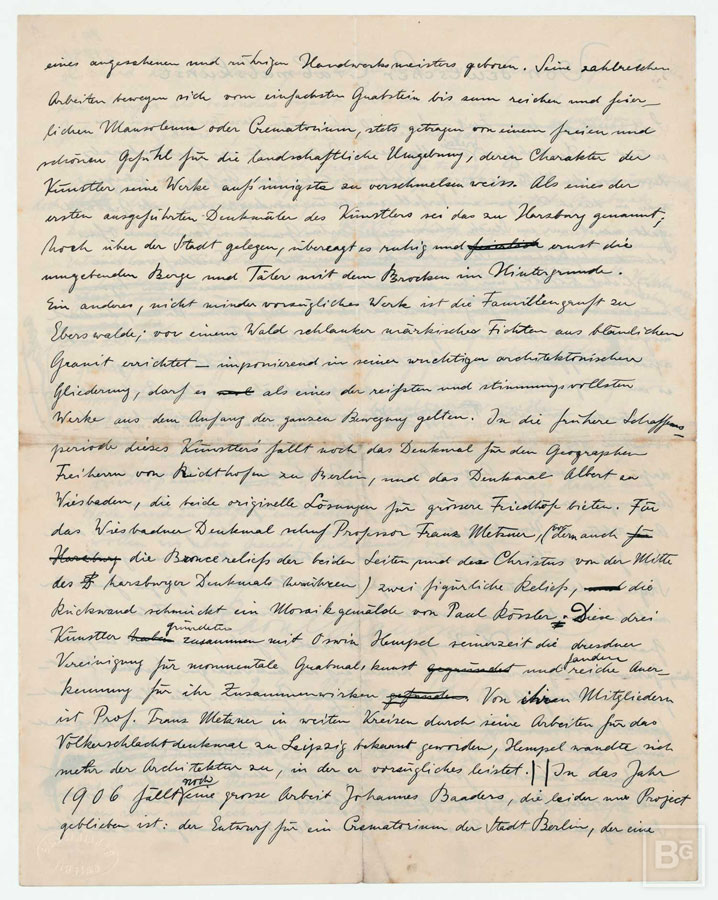 eines angesehenen und rührigen Handwerksmeisters geboren. Seine zahlreichen
Arbeiten bewegen sich vom einfachsten Grabstein bis zum reichen und feier-
lichen Mausoleum oder Crematorium, stets getragen von einem freien und
schönen Gefühl für die landschaftliche Umgebung, deren Charakter der
Künstler seine Werke aufs innigste zu verschmelzen weiss. Als eines der
ersten ausgeführten Denkmäler des Künstlers sei das zu Harzburg genannt;
hoch über der Stadt gelegen, überragt es ruhig und feierlich ernst die
umgebenden Berge und Täler mit dem Brocken im Hintergrunde.
Ein anderes, nicht minder vorzügliches Werk ist die Familiengruft zu
Eberswalde; vor einem Wald schlanker märkischer Fichten aus bläulichem
Granit errichtet – imponierend in seiner wuchtigen architektonischen
Gliederung, darf es als eines der reifsten und stimmungsvollsten
Werke aus dem Anfang der ganzen Bewegung gelten. In die frühere Schaffens-
periode dieses Künstlers fällt noch das Denkmal für den Geographen
Freiherrn von Richthofen zu Berlin, und das Denkmal Albert zu
Wiesbaden, die beide originelle Lösungen für grössere Friedhöfe bieten. Für
das Wiesbadner Denkmal schuf Professor Franz Metzner, (von dem auch für
Harzburg die Broncereliefs der beiden Seiten und des Christus von der Mitte
des harzburger Denkmals herrühren) zwei figürliche Reliefs, und die
Rückwand schmückt ein Mosaikgemälde von Paul Rössler. Diese drei
Künstler haben gründeten zusammen mit Oswin Hempel seinerzeit die dresdner
Vereinigung für monumentale Grabmalskunst gegründet und fanden reiche Aner-
kennung für ihr Zusammenwirken gefunden. Von ihren Mitgliedern
ist Prof. Franz Metzner in weiten Kreisen durch seine Arbeiten für das
Völkerschlachtdenkmal zu Leipzig bekannt geworden, Hempel wandte sich
mehr der Architektur zu, in der er vorzügliches leistet. || In das Jahr
1906 fällt noch eine grosse Arbeit Johannes Baaders, die leider nur Project
geblieben ist: der Entwurf für ein Crematorium der Stadt Berlin, der eine
BG